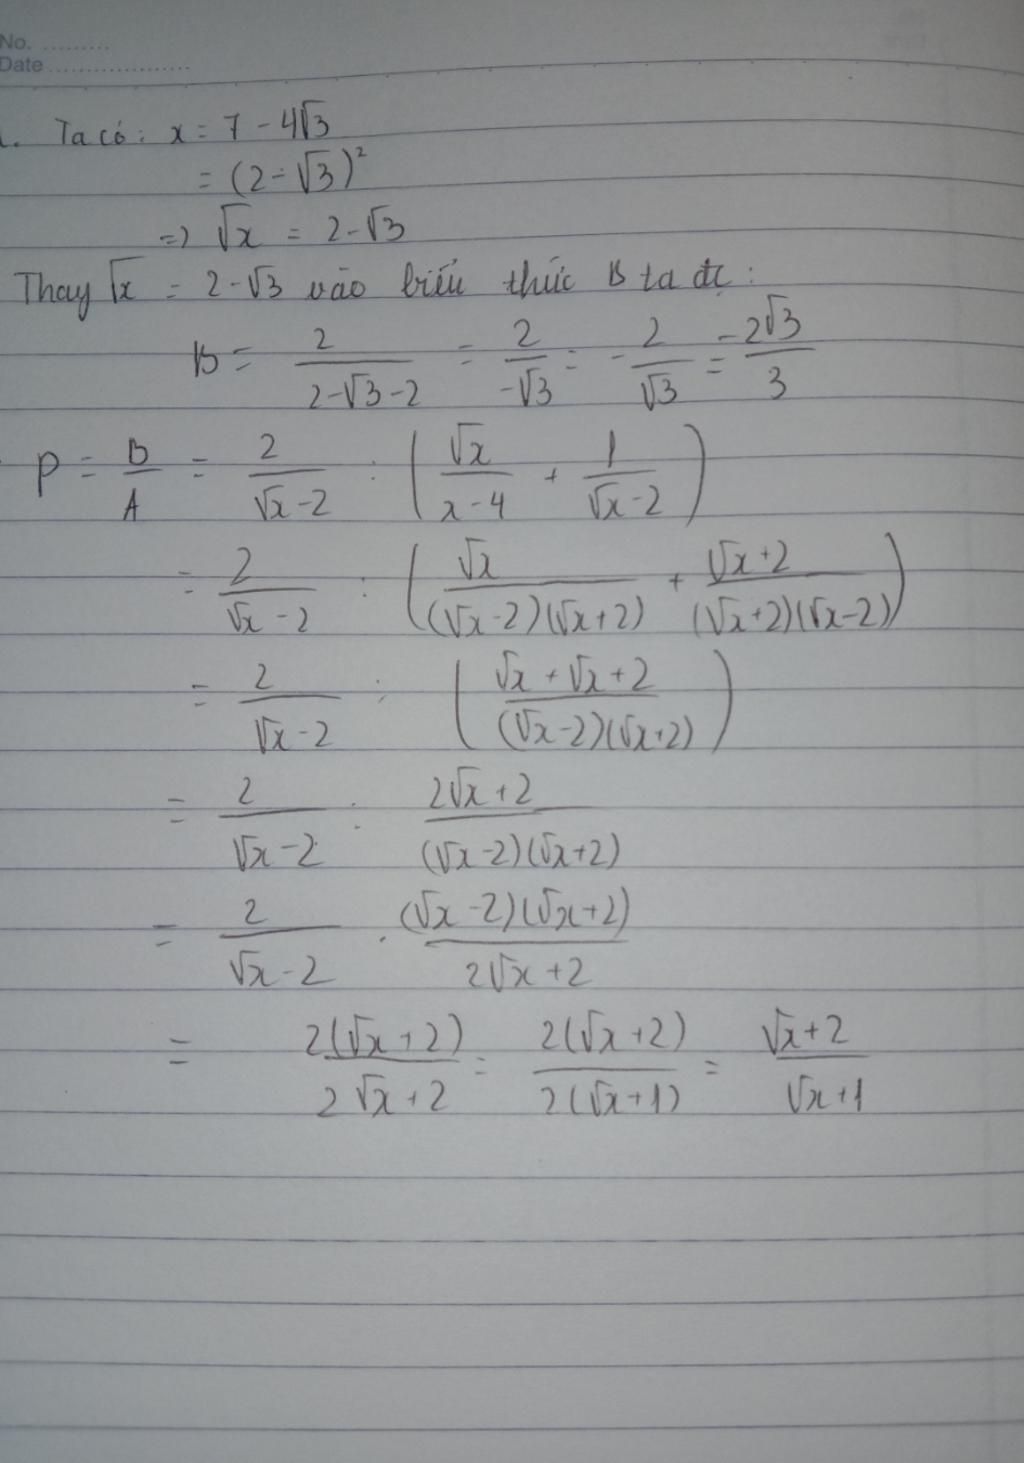 No. ..........
Date ....................
1. Ta có: x = 7 - 4√3
= (2-√3)²
=> √x = 2-√3
Thay √x = 2-√3 vào biểu thức B ta đc:
B = 2/(2-√3-2) = 2/(-√3) = -2/√3 = -2√3/3
P = B/A = 2/(√x-2) : (√x/(x-4) + 1/(√x-2))
= 2/(√x-2) : (√x/((√x-2)(√x+2)) + (√x+2)/((√x+2)(√x-2)))
= 2/(√x-2) : ((√x+√x+2)/((√x-2)(√x+2)))
= 2/(√x-2) : (2√x+2)/((√x-2)(√x+2))
= 2/(√x-2) . ((√x-2)(√x+2))/(2√x+2)
= 2(√x+2)/(2√x+2) = 2(√x+2)/(2(√x+1)) = (√x+2)/(√x+1)